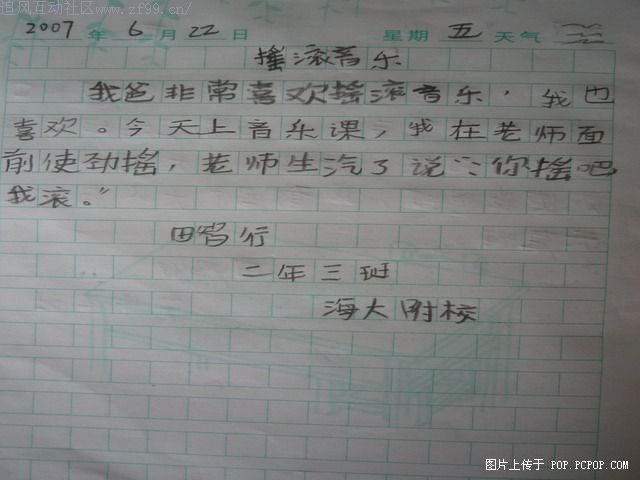 追风互动社区www.zf99.cn/
2007 年 6 月 22 日 星期 五 天气
摇滚音乐
我爸非常喜欢摇滚音乐，我也
喜欢。今天上音乐课，我在老师面
前使劲摇，老师生汽了说：“你摇吧
我滚。”
田智行
二年三班
海大附校
图片上传于 POP.PCPOP.COM